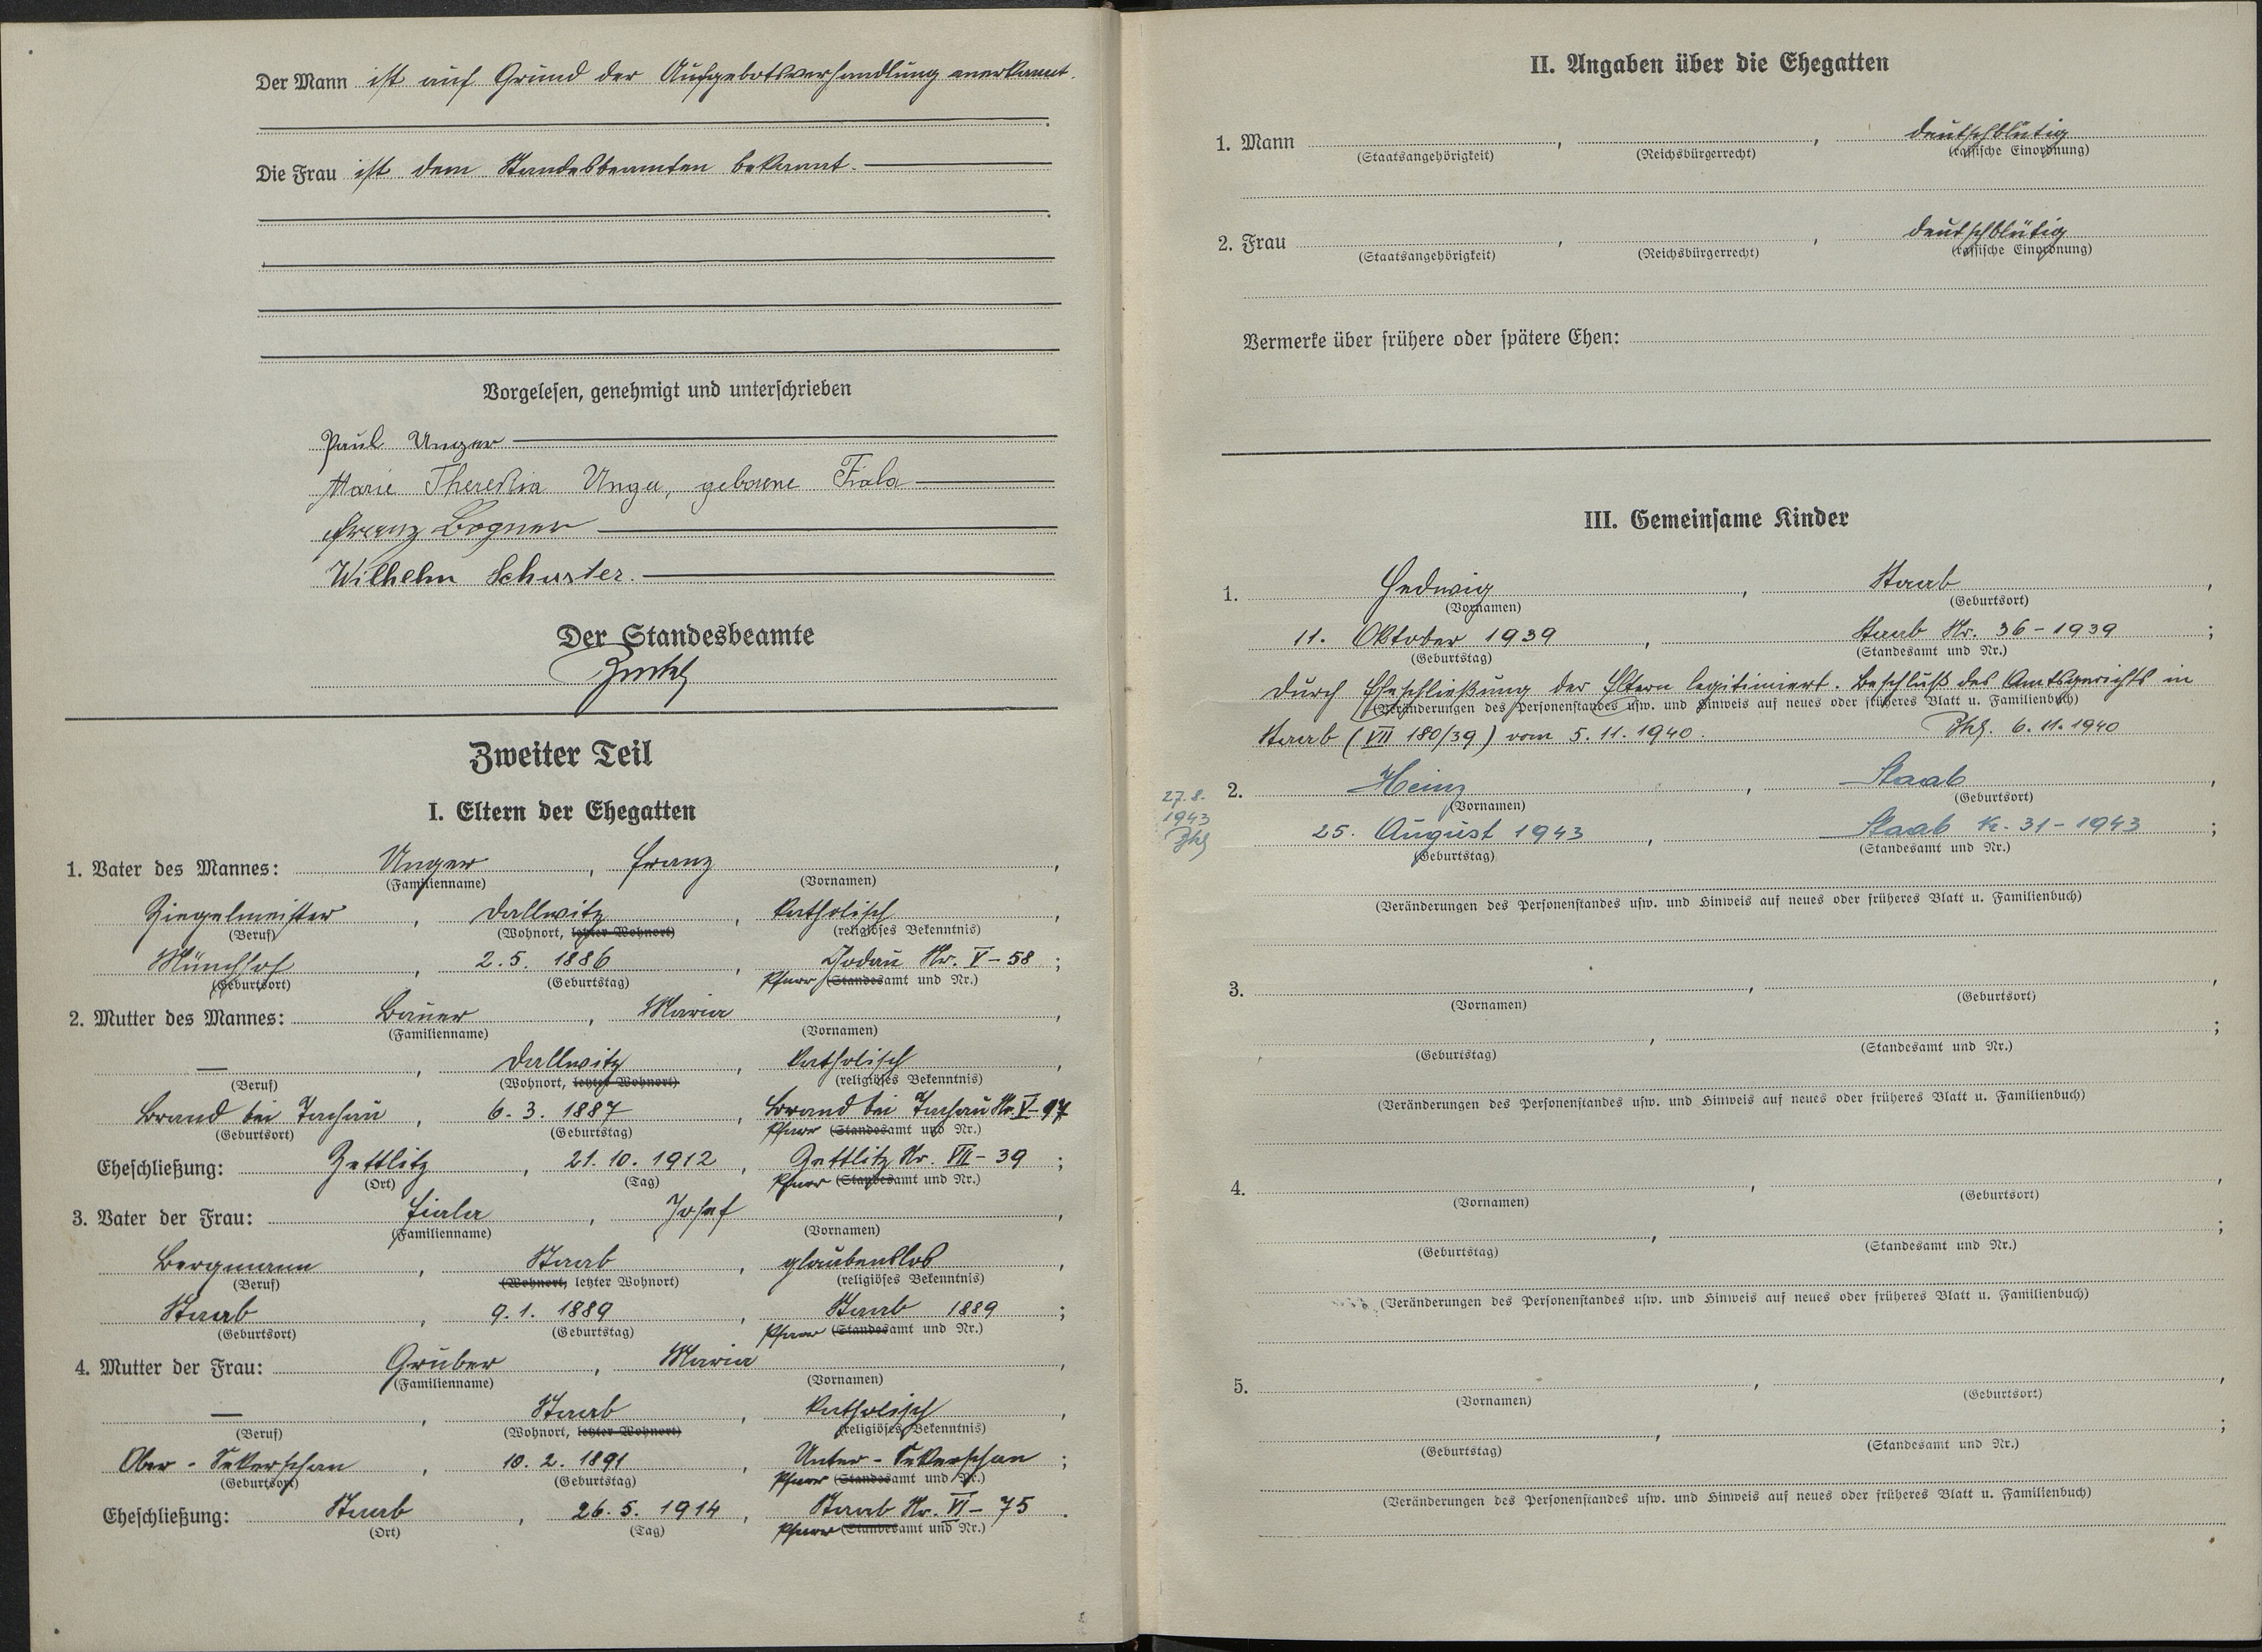 Der Mann ist auf Grund der Aufgebotsverhandlung anerkannt.
Die Frau ist dem Standesbeamten bekannt.
Vorgelesen, genehmigt und unterschrieben
Paul Unger
Marie Theresia Unger, geborene Fiala
Franz Bogner
Wilhelm Schuster.
Der Standesbeamte
Zweiter Teil
I. Eltern der Ehegatten
1. Vater des Mannes: Unger, Franz,
(Familienname) (Vornamen)
Ziegelmeister, Dallwitz, katholisch,
(Beruf) (Wohnort, letzter Wohnort) (religiöses Bekenntnis)
Münchhof, 2.5. 1886, Chodau Nr. V-58;
(Geburtsort) (Geburtstag) Pfarr (Standesamt und Nr.)
2. Mutter des Mannes: Bauer, Maria,
(Familienname) (Vornamen)
—, Dallwitz, katholisch,
(Beruf) (Wohnort, letzter Wohnort) (religiöses Bekenntnis)
Brand bei Tachau, 6.3. 1887, Brand bei Tachau Nr. V-97
(Geburtsort) (Geburtstag) Pfarr (Standesamt und Nr.)
Eheschließung: Zettlitz, 21.10.1912, Zettlitz Nr. VII-39;
(Ort) (Tag) Pfarr (Standesamt und Nr.)
3. Vater der Frau: Fiala, Josef,
(Familienname) (Vornamen)
Bergmann, Staab, glaubenslos,
(Beruf) (Wohnort, letzter Wohnort) (religiöses Bekenntnis)
Staab, 9.1. 1889, Staab 1889;
(Geburtsort) (Geburtstag) Pfarr (Standesamt und Nr.)
4. Mutter der Frau: Gruber, Maria,
(Familienname) (Vornamen)
—, Staab, katholisch,
(Beruf) (Wohnort, letzter Wohnort) (religiöses Bekenntnis)
Ober-Sekerschan, 10.2. 1891, Unter-Sekerschan;
(Geburtsort) (Geburtstag) Pfarr (Standesamt und Nr.)
Eheschließung: Staab, 26.5. 1914, Staab Nr. VI-75.
(Ort) (Tag) Pfarr (Standesamt und Nr.)
II. Angaben über die Ehegatten
1. Mann , , deutschblütig
(Staatsangehörigkeit) (Reichsbürgerrecht) (rassische Einordnung)
2. Frau , , deutschblütig
(Staatsangehörigkeit) (Reichsbürgerrecht) (rassische Einordnung)
Vermerke über frühere oder spätere Ehen:
III. Gemeinsame Kinder
1. Hedwig, Staab,
(Vornamen) (Geburtsort)
11. Oktober 1939, Staab Nr. 36-1939;
(Geburtstag) (Standesamt und Nr.)
Durch Eheschließung der Eltern legitimiert. Beschluß des Amtsgerichts in
(Veränderungen des Personenstandes usw. und Hinweis auf neues oder früheres Blatt u. Familienbuch)
Staab (VII 180/39) vom 5.11.1940. 6.11.1940
27.8.
1943
2. Heinz, Staab,
(Vornamen) (Geburtsort)
25. August 1943, Staab Nr. 31-1943;
(Geburtstag) (Standesamt und Nr.)
(Veränderungen des Personenstandes usw. und Hinweis auf neues oder früheres Blatt u. Familienbuch)
3. , ,
(Vornamen) (Geburtsort)
, ;
(Geburtstag) (Standesamt und Nr.)
(Veränderungen des Personenstandes usw. und Hinweis auf neues oder früheres Blatt u. Familienbuch)
4. , ,
(Vornamen) (Geburtsort)
, ;
(Geburtstag) (Standesamt und Nr.)
(Veränderungen des Personenstandes usw. und Hinweis auf neues oder früheres Blatt u. Familienbuch)
5. , ,
(Vornamen) (Geburtsort)
, ;
(Geburtstag) (Standesamt und Nr.)
(Veränderungen des Personenstandes usw. und Hinweis auf neues oder früheres Blatt u. Familienbuch)